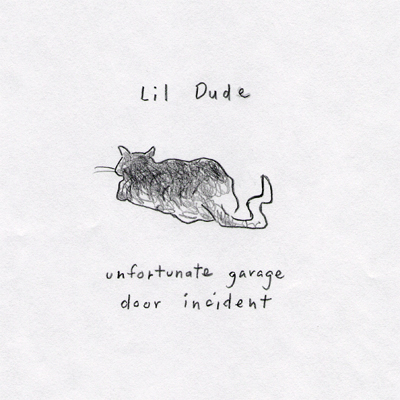 Lil Dude
unfortunate garage
door incident